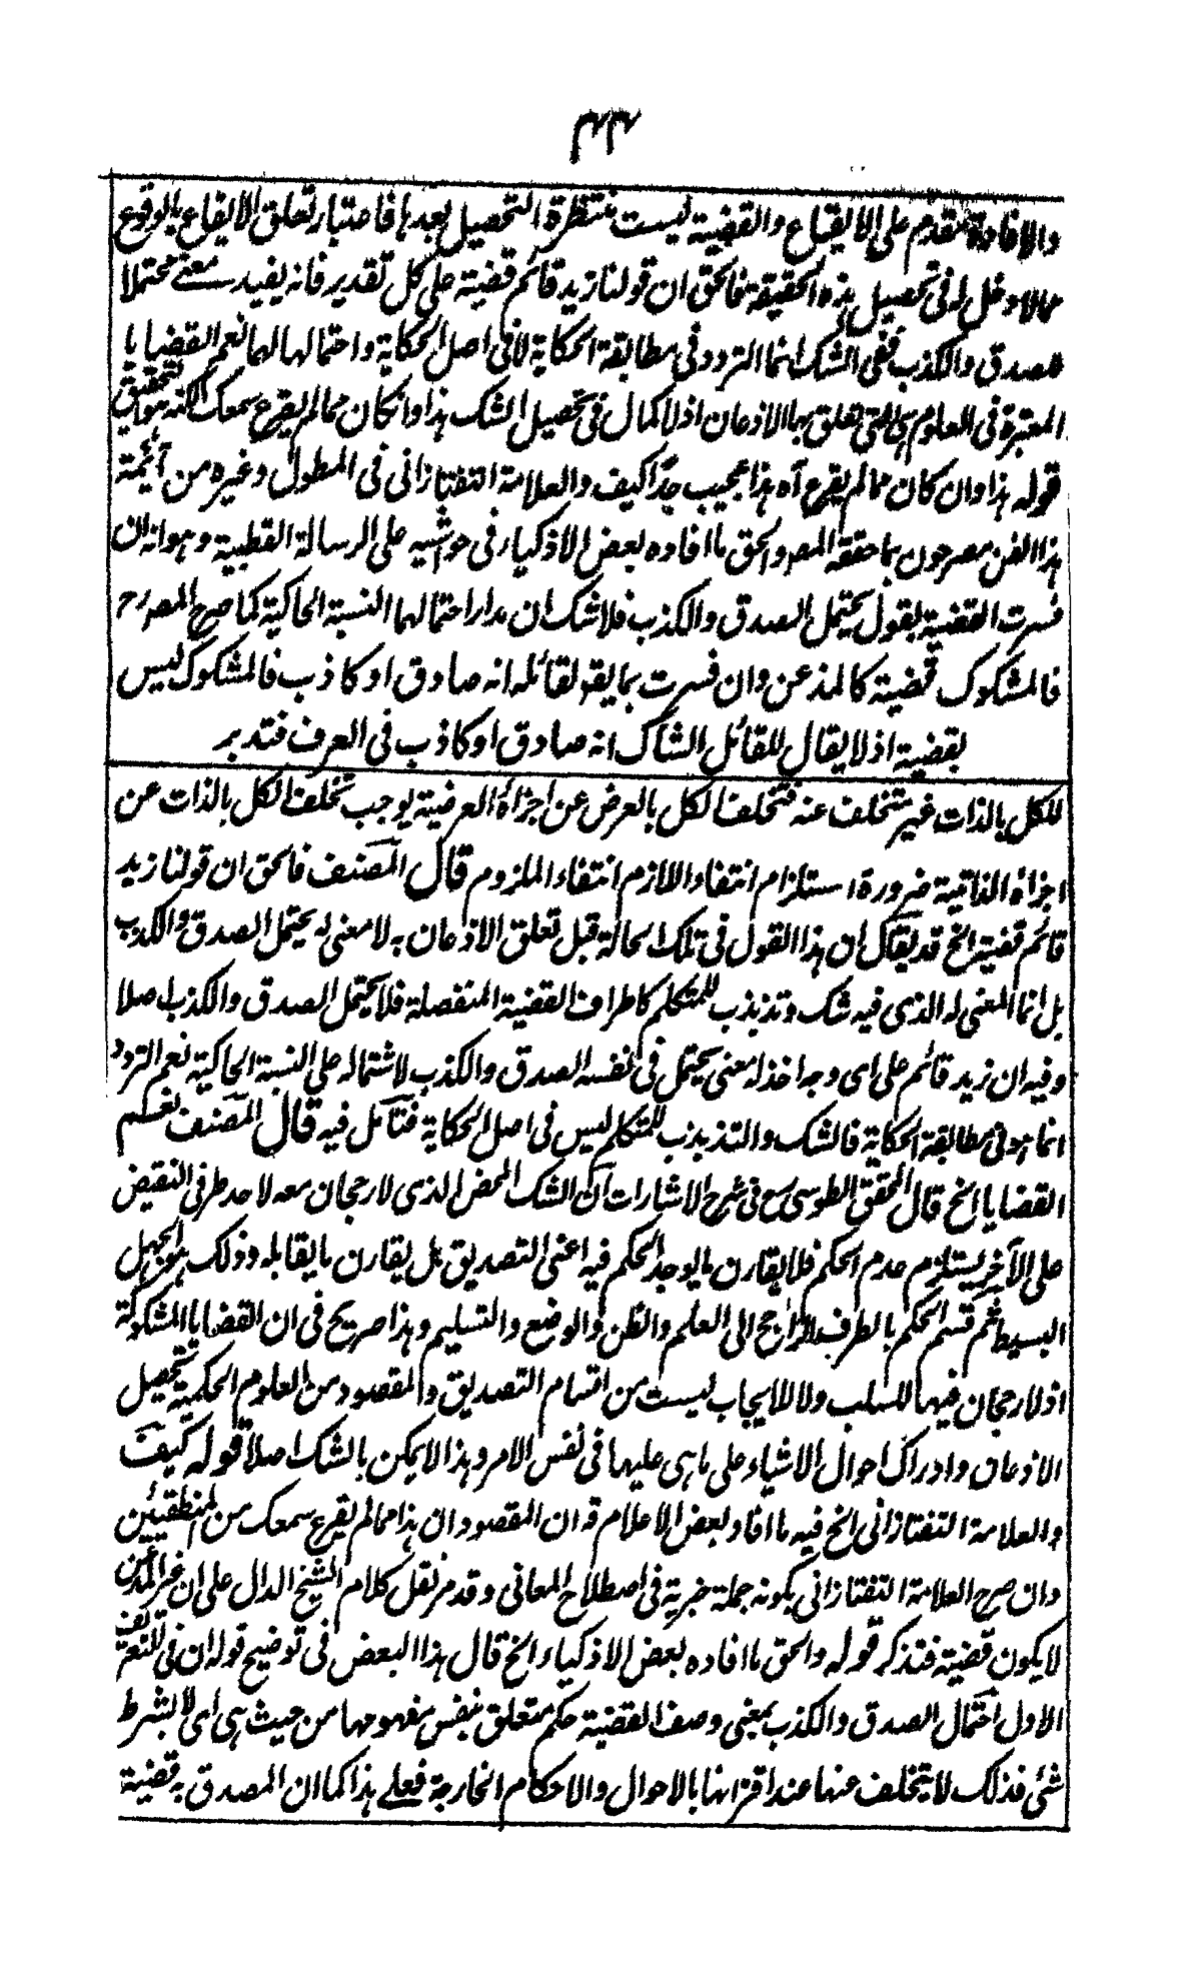 ۳۴۴
والافادة مقدم على الايقاع والقضية ليست منتظرة التحصيل بعدها فاعتبار تعلق الايقاع بالوقوع
مما لا دخل له فى تحصيل هذه الحقيقة فالحق ان قولنا زيد قائم قضية على كل تقدير فانه يفيد معنى محتملا
للصدق والكذب ففى الشك انما التردد فى مطابقة الحكاية لا فى اصل الحكاية واحتمالها لهما نعم القضايا
المعتبرة فى العلوم هى التى تعلق بها الاذعان اذ لا كمال فى تحصيل الشك هذا وان كان مما لم يقرع سمعك لكنه هو التحقيق
قوله هذا وان كان مما لم يقرع آه هذا عجيب جدًا كيف والعلامة التفتازانى فى المطول وغيره من آئمة
هذا الفن مصرحون بما حققه المصـ والحق ما افاده بعض الاذكياء فى حواشيه على الرسالة القطبية وهو انه ان
فسرت القضية بقول يحتمل الصدق والكذب فلا شك ان مدار احتمالهما النسبة الحاكية كما صرح المصـ رح
فالمشكوك قضية كالمذعن وان فسرت بما يقـ لقائله انه صادق او كاذب فالمشكوك ليس
بقضية اذ لا يقال للقائل الشاك انه صادق او كاذب فى العرف فتدبر
للكل بالذات غير متخلف عنه فتخلف الكل بالعرض عن اجزاءه العرضية يوجب تخلف الكل بالذات عن
اجزاءه الذاتية ضرورة استلزام انتفاء اللازم انتفاء الملزوم قال المصنف فالحق ان قولنا زيد
قائم قضية الخ قد يقال ان هذا القول فى تلك الحالة قبل تعلق الاذعان به لا معنى له يحتمل الصدق والكذب
بل انما المعنى له الذى فيه شك وتذبذب للمتكلم كاطراف القضية المنفصلة فلا يحتمل الصدق والكذب اصلا
وفيه ان زيد قائم على اى وجه اخذ له معنى يحتمل فى نفسه الصدق والكذب لاشتماله على النسبة الحاكية نعم التردد
انما هو فى مطابقة الحكاية فالشك والتذبذب للمتكلم ليس فى اصل الحكاية فتأمل فيه قال المصنف نعم
القضايا الخ قال المحقق الطوسى رح فى شرح الاشارات ان الشك المحض الذى لا رجحان معه لاحد طرفى النقيض
على الآخر يستلزم عدم الحكم فلا يقارن ما يوجد الحكم فيه اعنى التصديق بل يقارن ما يقابله وذلك هو الجهل
البسيط ثم قسم الحكم بالطرف الراجح الى العلم والظن والوضع والتسليم وهذا صريح فى ان القضايا المشكوكة
اذ لا رجحان فيها للسلب ولا للايجاب ليست من اقسام التصديق والمقصود من العلوم الحكمية تحصيل
الاذعان وادراك احوال الاشياء على ما هى عليها فى نفس الامر وهذا لا يمكن بالشك اصلا قوله كيف
والعلامة التفتازانى الخ فيه ما افاد بعض الاعلام قه ان المقصود ان هذا مما لم يقرع سمعك من المنطقيين
وان صرح العلامة التفتازانى بكونه جملة خبرية فى اصطلاح المعانى وقد مر نقل كلام الشيخ الدال على ان غير المذعن
لا يكون قضية فتذكر قوله والحق ما افاده بعض الاذكياء الخ قال هذا البعض فى توضيح قوله ان فى التعريف
الاول احتمال الصدق والكذب بمعنى وصف القضية حكم متعلق بنفس مفهومها من حيث هى اى لا بشرط
شئ فذلك لا يتخلف عنها عند اقترانها بالاحوال والاحكام الخارجة فعلى هذا كما ان المصدق به قضية